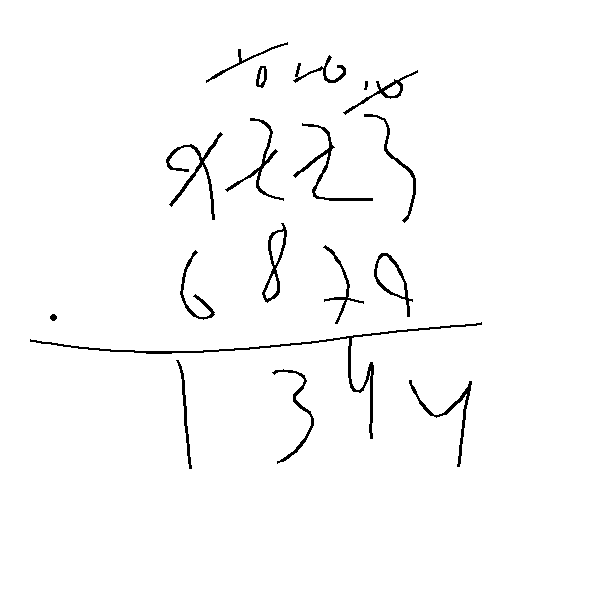 10 10 10
8223
6879
1344